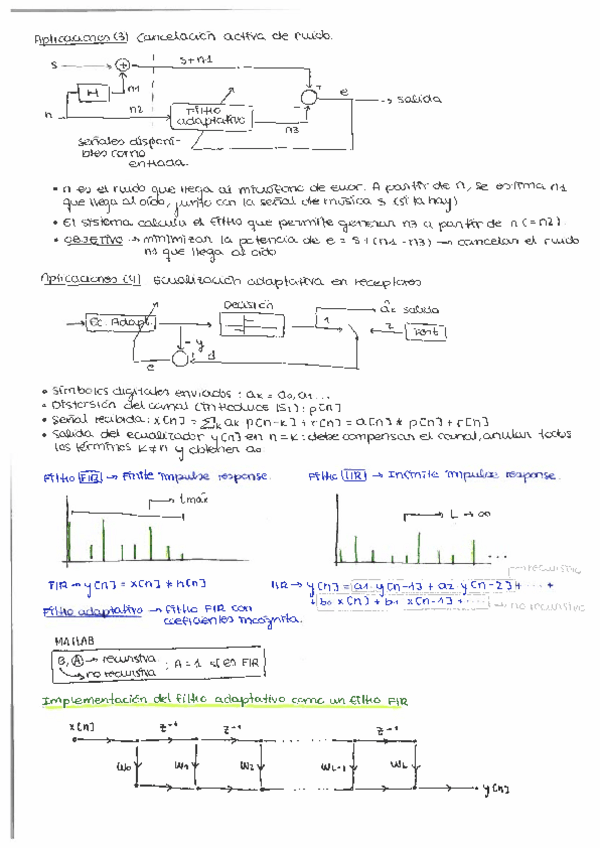 Aplicaciones (3) Cancelación activa de ruido.
s
+
s+n1
H
n1
n
n2
Filtro
adaptativo
n3
+
-
e
salida
señales disponi-
bles como
entrada.
• n es el ruido que llega al micrófono de error. A partir de n, se estima n1
que llega al oído, junto con la señal de música s (si la hay)
• El sistema calcula el filtro que permite generar n3 a partir de n (=n2).
• OBJETIVO → minimizar la potencia de e = s + (n1 - n3) → cancelar el ruido
n1 que llega al oído
Aplicaciones (4) Ecualización adaptativa en receptores
Ec. Adapt.
Decisión
1
âk salida
2
- y
d
e
• Símbolos digitales enviados: ak = a0, a1 ...
• Distorsión del canal (introduce ISI): p[n]
• Señal recibida: x[n] = Σk ak p[n-k] + r[n] = a[n] * p[n] + r[n]
• Salida del ecualizador y[n] en n=k: debe compensar el canal, anular todos
los términos k≠n y obtener a0
Filtro FIR → Finite impulse response.
Filtro IIR → Infinite impulse response.
tmáx
L → ∞
...
recursiva
FIR → y[n] = x[n] * h[n]
IIR → y[n] = a1 y[n-1] + a2 y[n-2] + ... +
+ b0 x[n] + b1 x[n-1] + ... no recursiva
Filtro adaptativo → filtro FIR con
coeficientes incógnita.
MATLAB
B, A → recursiva ; A = 1 si es FIR
no recursiva
Implementación del filtro adaptativo como un filtro FIR
x[n] z⁻¹ z⁻¹ z⁻¹
w0 w1 w2 wL-1 wL
y[n]